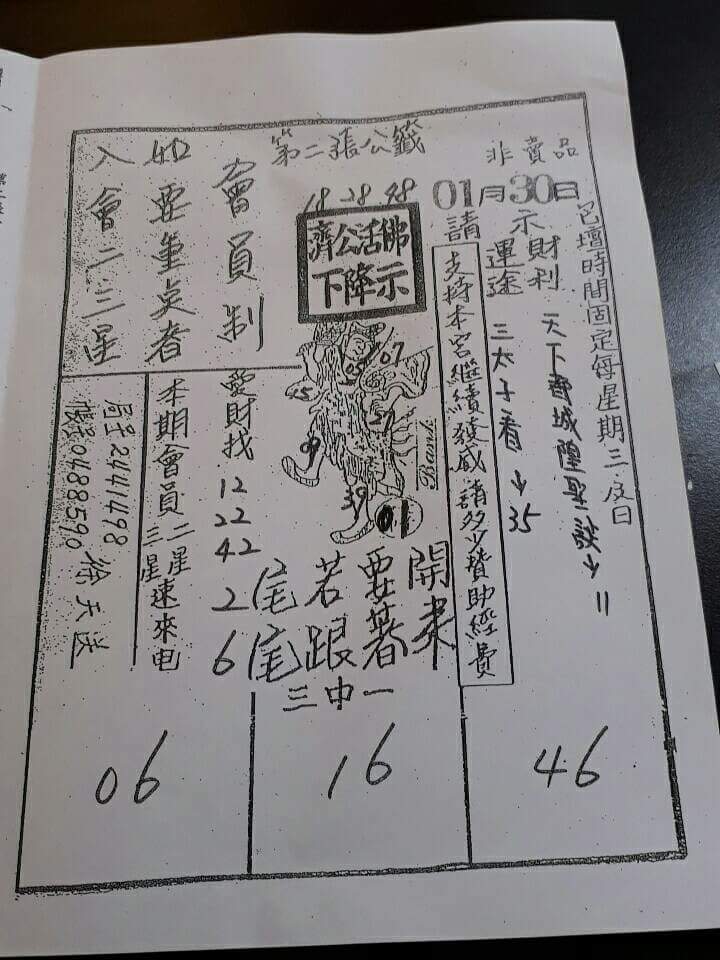 第二張公籤
非賣品
18 28 48
01月30日
濟公活佛
下降示
請
示財利
運途
支持本宮繼續發威請多少贊助經費
三太子看 35
天下都城隍聖談 11
時間固定每星期三.及日
會員制
要重炎者
入會二三星
愛財找
12
22
42
本期會員二三星速來电
局2441498
帳0488590
徐天送
05 07
45
39
01
Bank
開來
要著
若跟
2尾
6尾
三中一
06
16
46